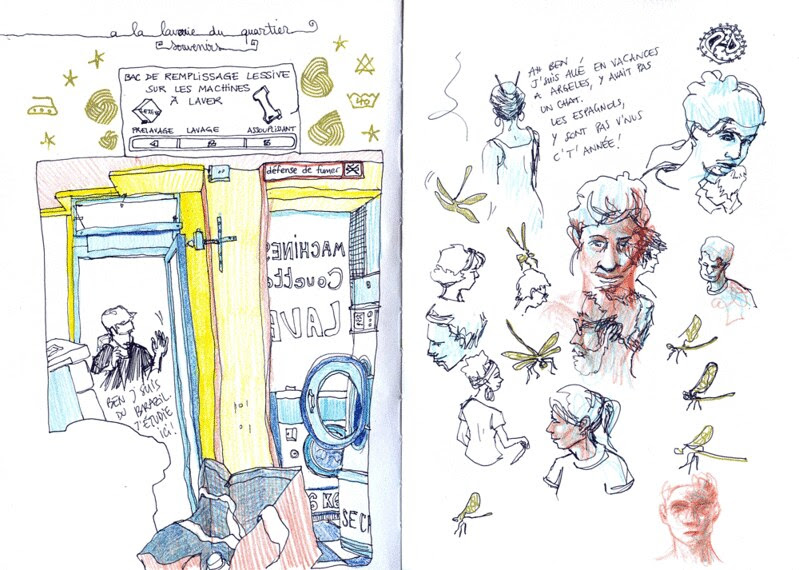 a la laverie du quartier
souvenirs
BAC DE REMPLISSAGE LESSIVE
SUR LES MACHINES
À LAVER
PRELAVAGE LAVAGE ASSOUPLISSANT
40
défense de fumer
MACHINES
Couette
LAVE
BEN J'SUIS
DU BARAZIL
J'ETUDIE
ICI!
6 KG
SECH
AH BEN
J'SUIS ALLÉ EN VACANCES
A ARGELES, Y AVAIT PAS
UN CHAT.
LES ESPAGNOLS,
Y SONT PAS V'NUS
C'T' ANNÉE!